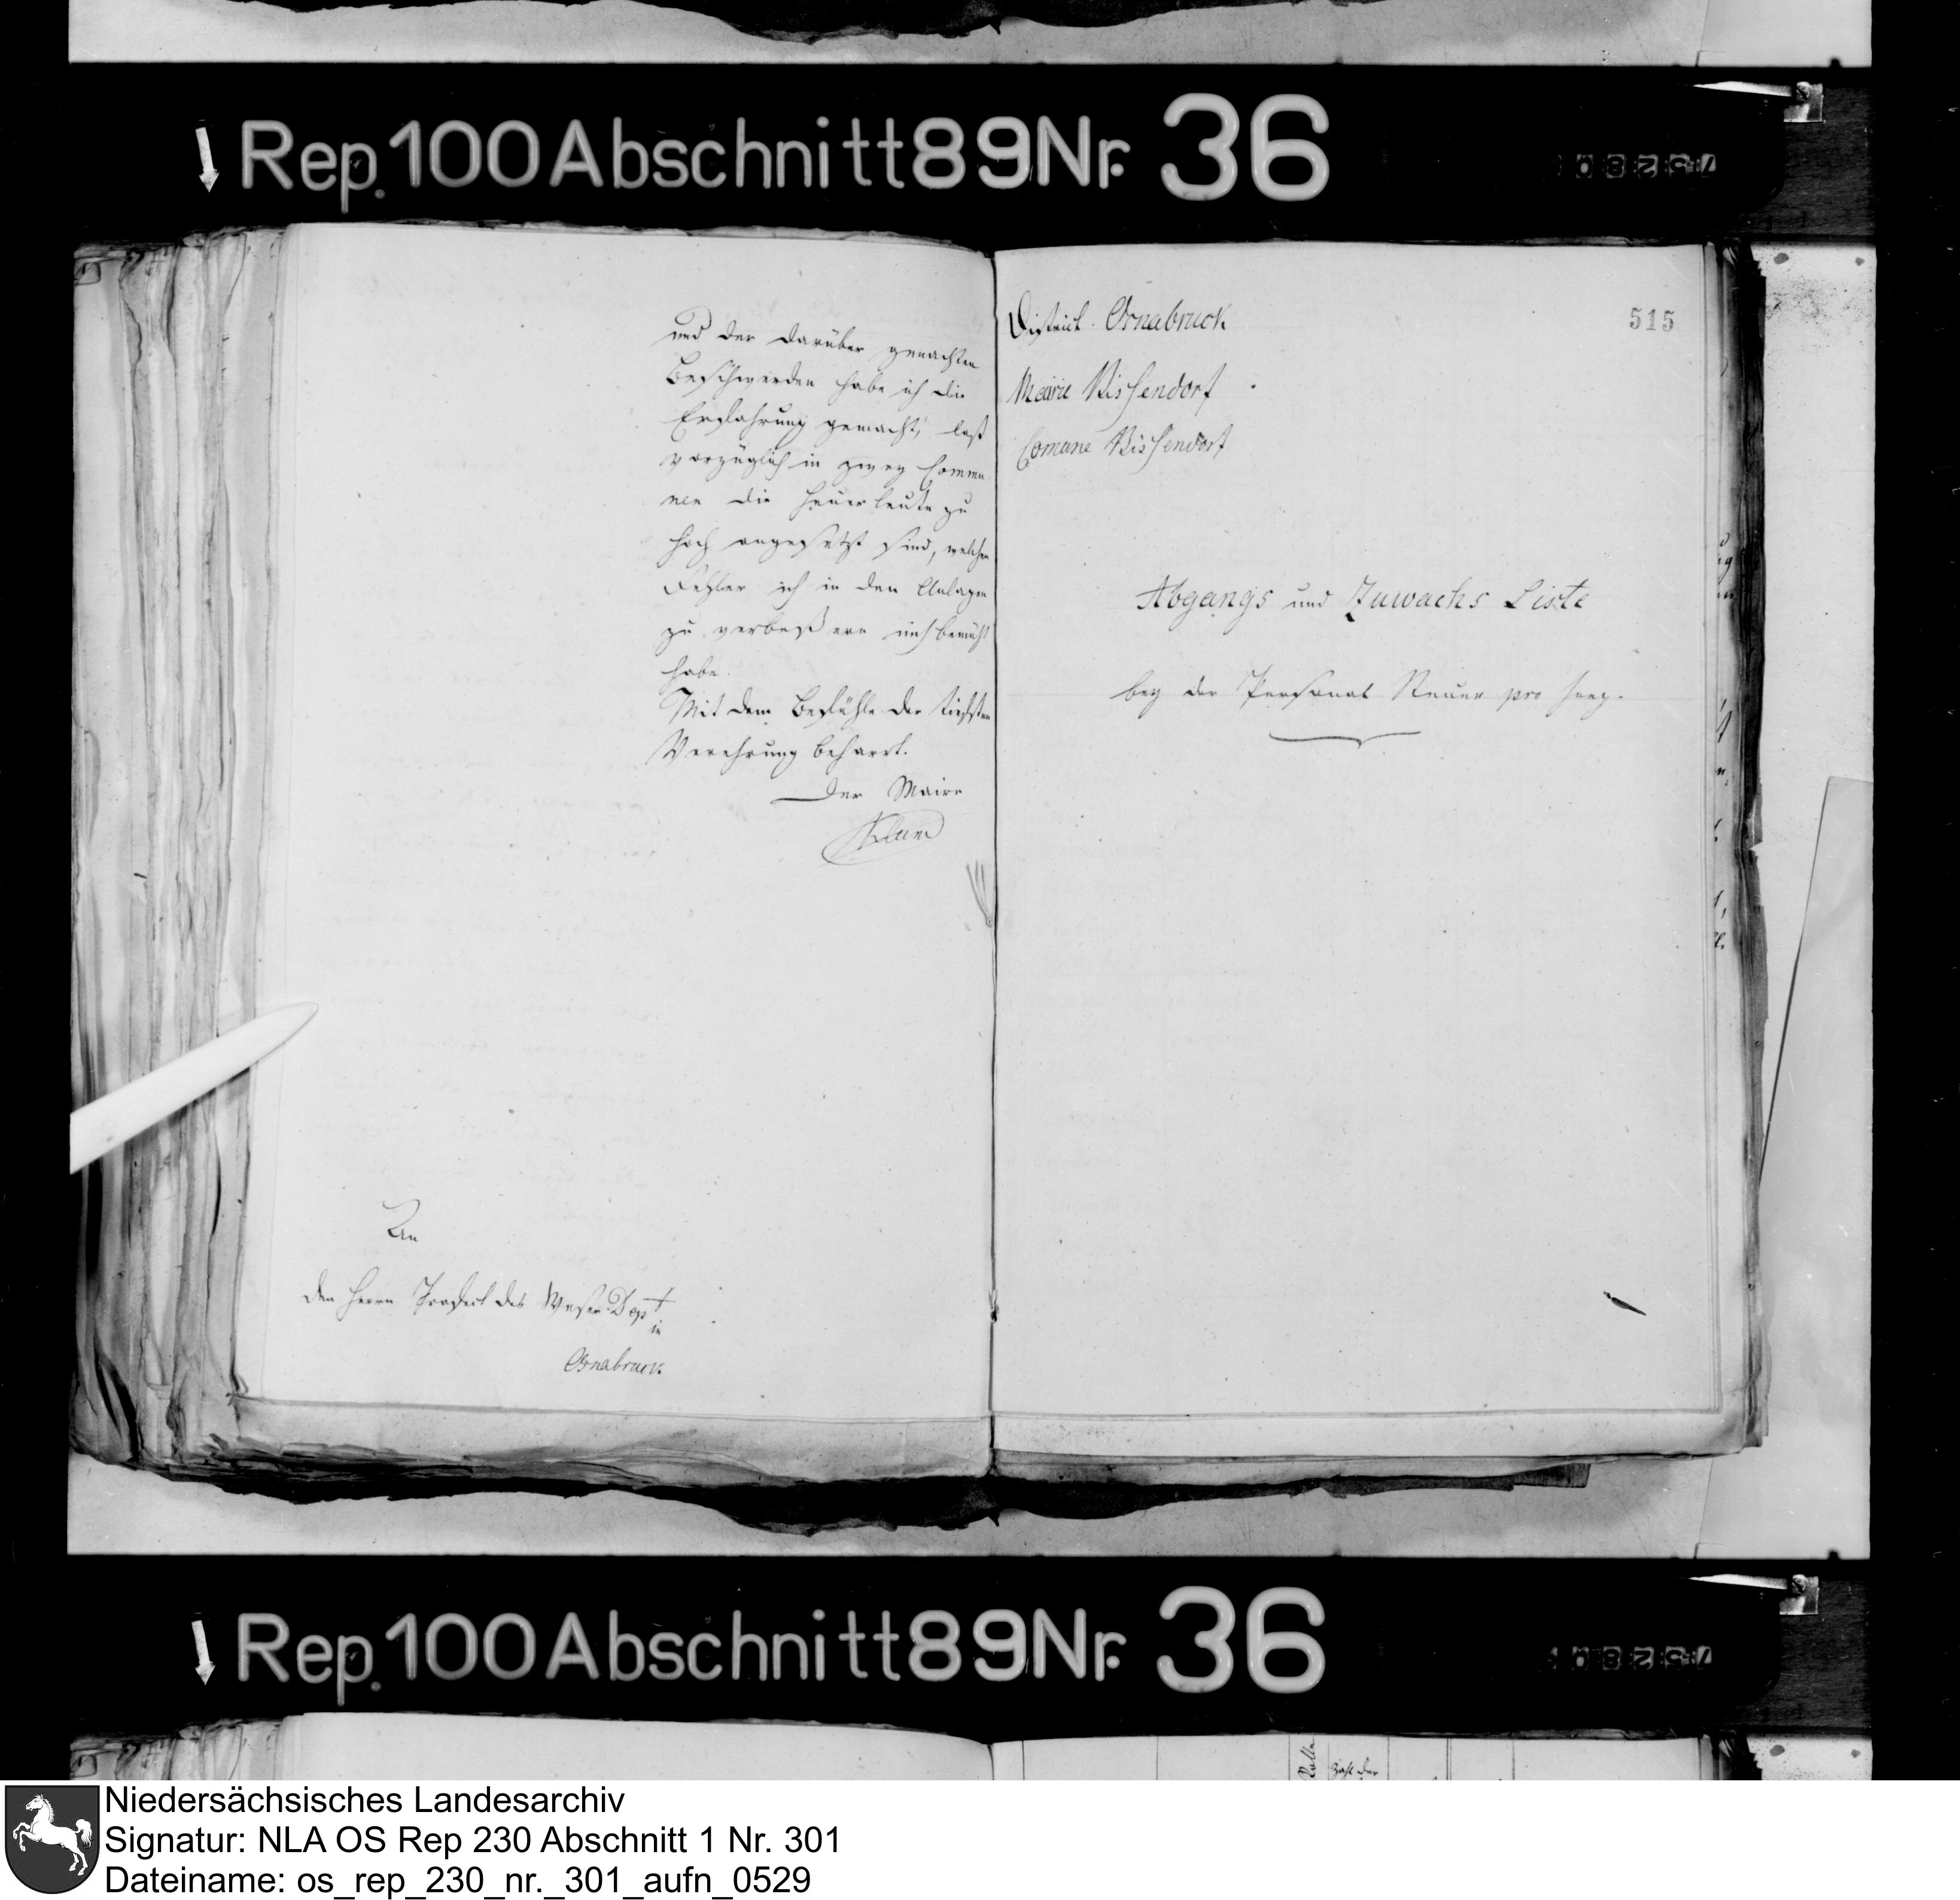 Rep. 100 Abschnitt 89 Nr. 36
75280
und der darüber gemachten
Beschwerden habe ich die
Erfahrung gemacht, daß
vorzüglich in zwey Commu
nen die Heuerleute zu
hoch angesetzt sind, welchen
Fehler ich in den Anlagen
zu verbeßern mich bemüht
habe.
Mit dem Gefühle der tiefsten
Verehrung beharrt.
Der Maire
An
den Herrn Präfect des Weser-Dept
in
Osnabruck.
515
District Osnabruck
Mairie Bissendorf
Comune Bissendorf
Abgangs und Zuwachs Liste
bey der Personal Steuer pro
Rep. 100 Abschnitt 89 Nr. 36
75280
Rolle
Zahl der
Niedersächsisches Landesarchiv
Signatur: NLA OS Rep 230 Abschnitt 1 Nr. 301
Dateiname: os_rep_230_nr._301_aufn_0529